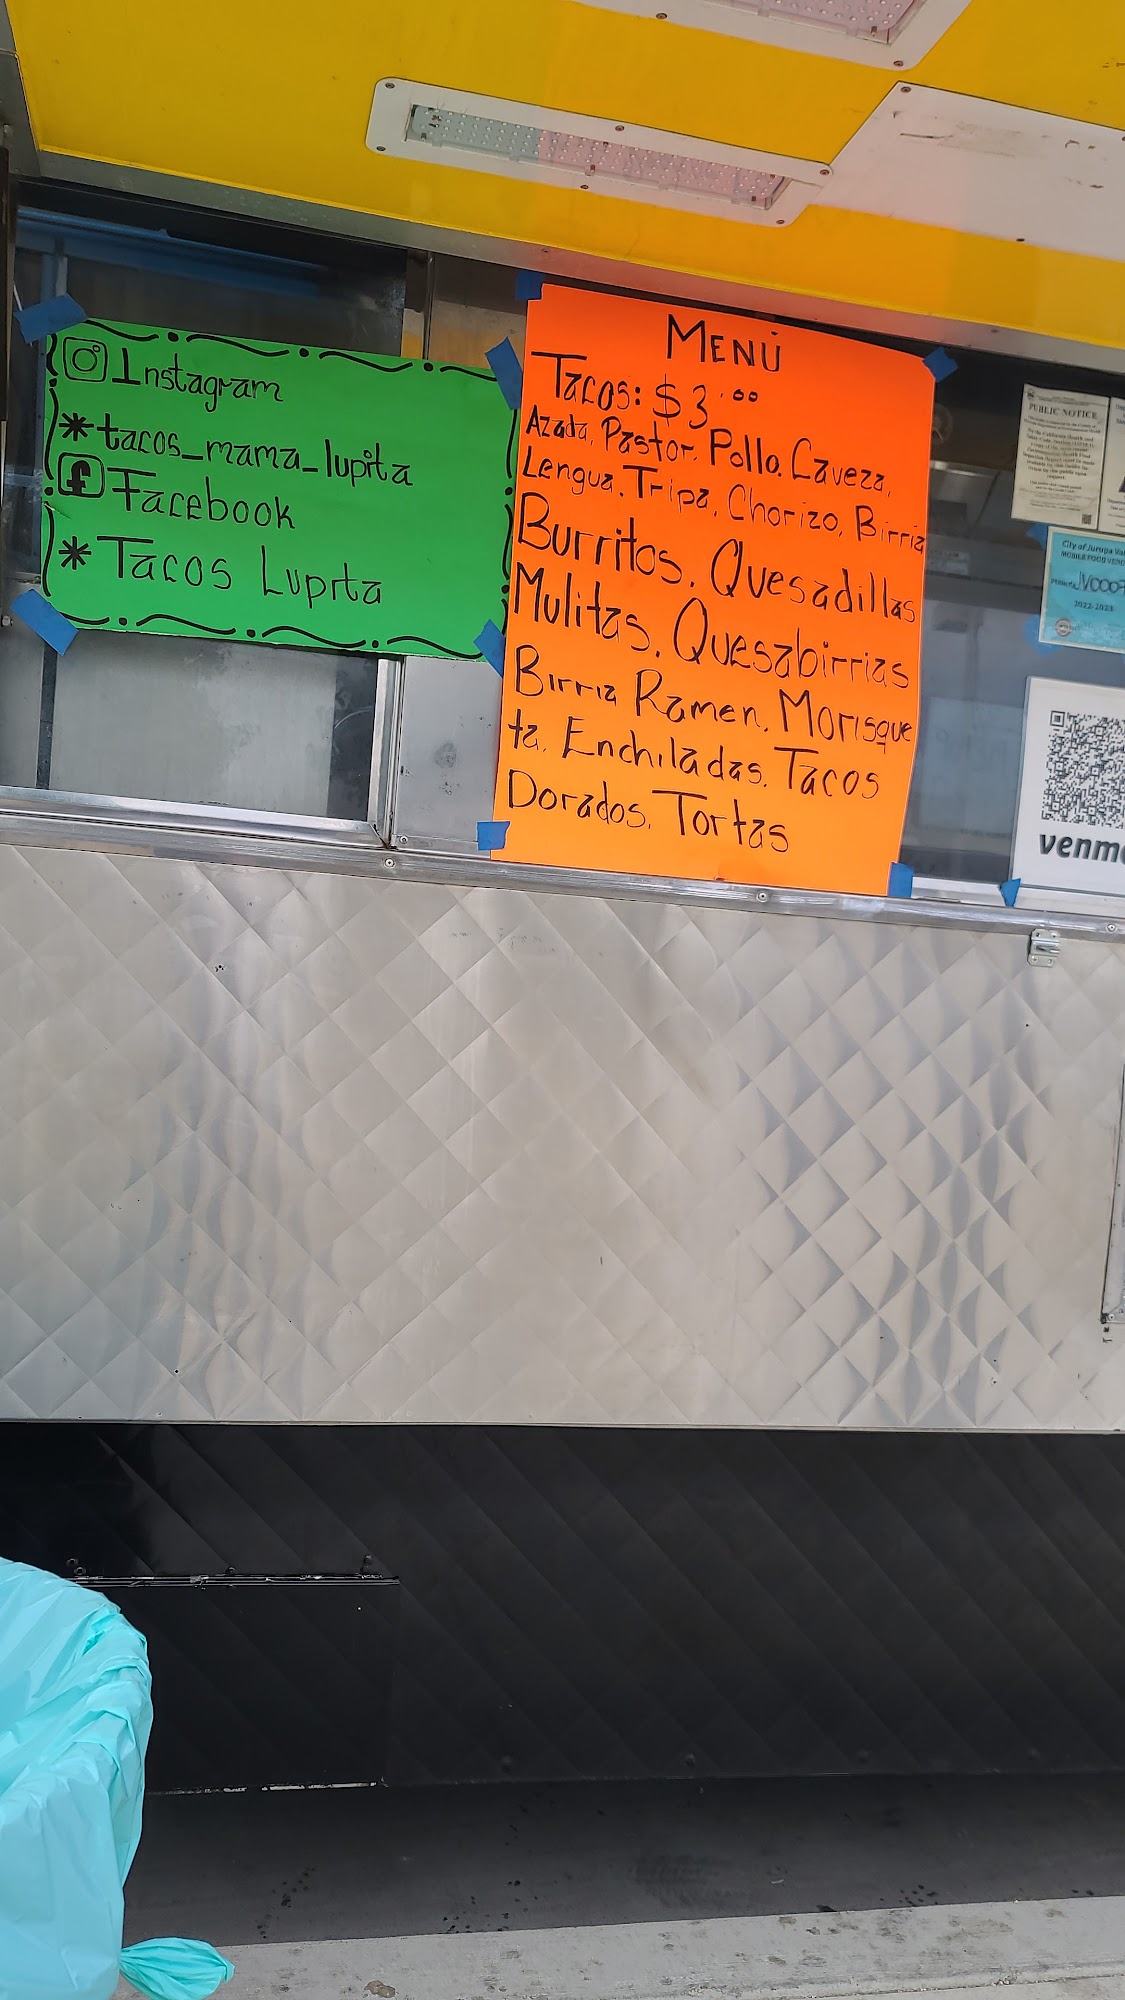 Instagram
*tacos_mama_lupita
Facebook
*Tacos Lupita
MENÚ
Tacos: $3.00
Azada, Pastor, Pollo, Caveza,
Lengua, Tripa, Chorizo, Birria
Burritos, Quesadillas
Mulitas, Quesabirrias
Birria Ramen, Morisque
ta, Enchiladas, Tacos
Dorados, Tortas
PUBLIC NOTICE
City of Jurupa
MOBILE FOOD
2022-2023
venm